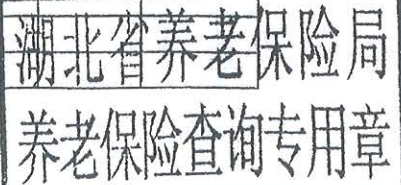 湖北省养老保险局
养老保险查询专用章